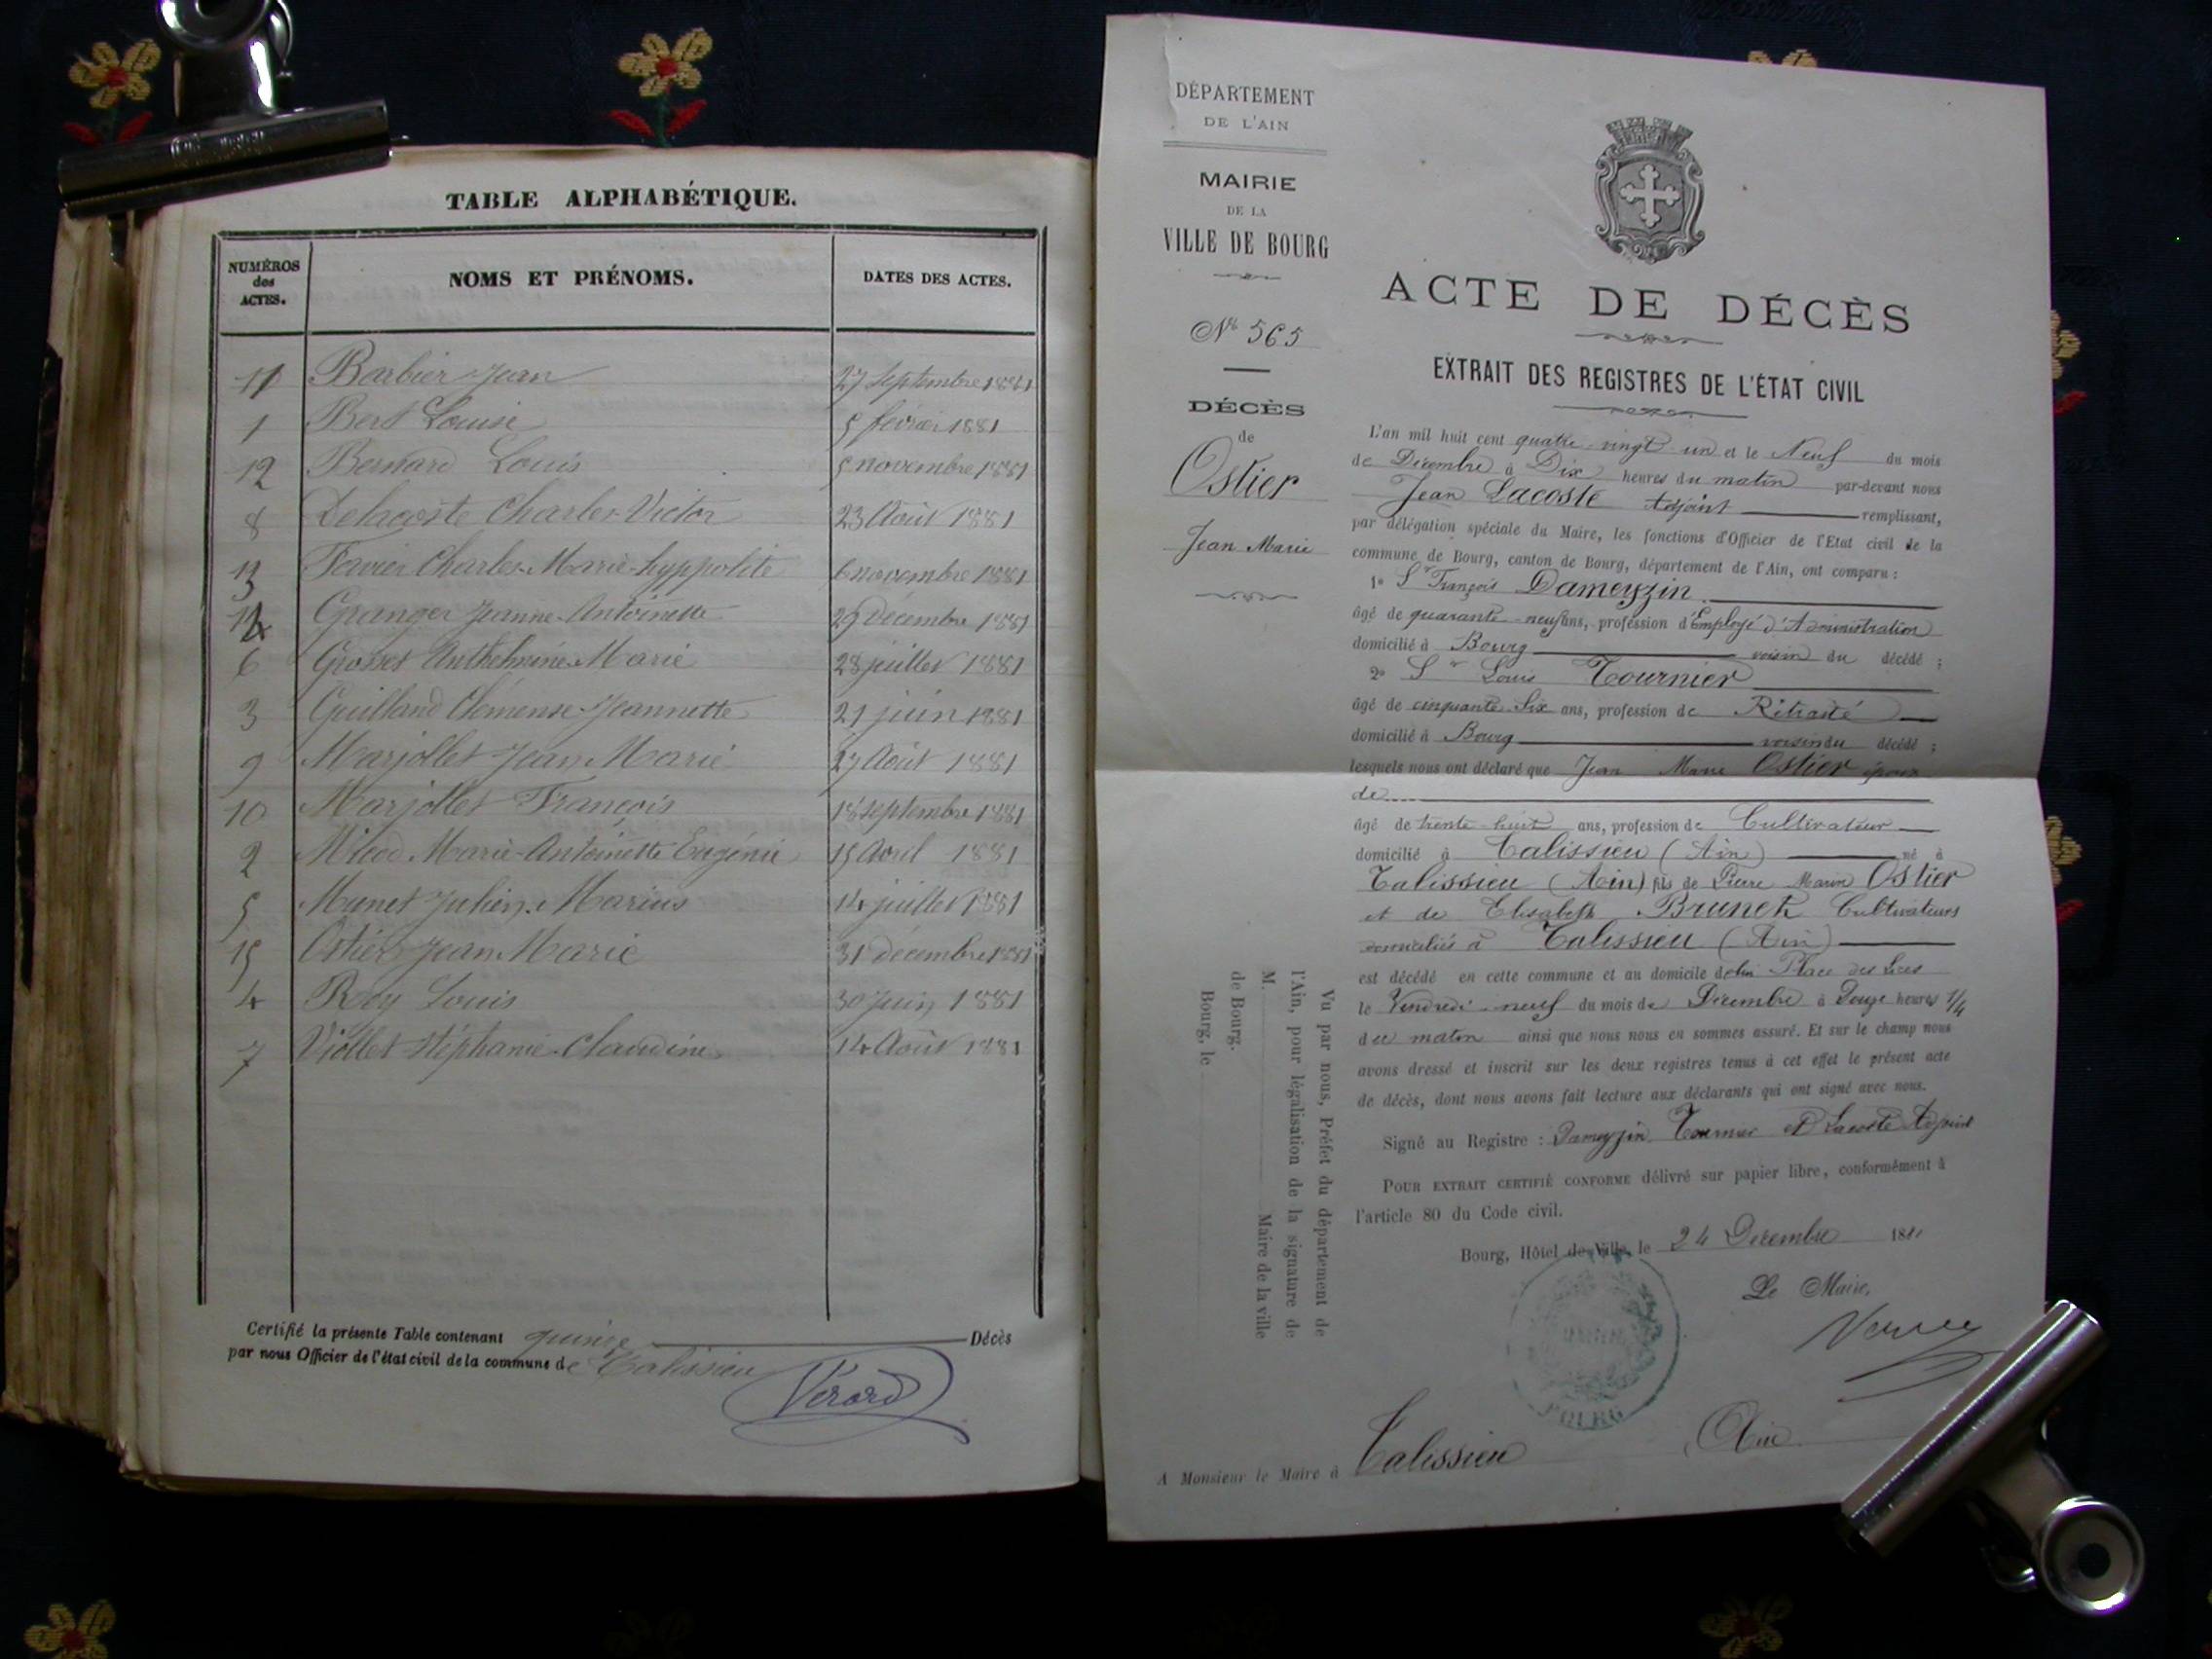 TABLE ALPHABÉTIQUE.
NUMÉROS
des
ACTES.
NOMS ET PRÉNOMS.
DATES DES ACTES.
11 Barbier Jean 27 Septembre 1881
1 Bert Louise 5 février 1881
12 Bernard Louis 5 novembre 1881
8 Delacoste Charles Victor 23 Août 1881
13 Charles-Marie-hyppolite 6 novembre 1881
14 Granger Jeanne-Antoinette 29 Décembre 1881
6 Grosset Anthelmine-Marie 28 juillet 1881
3 Guilland Clémense-Jeannette 21 juin 1881
9 Marjollet Jean Marie 27 Août 1881
10 Marjollet François 18 septembre 1881
2 Micod Marie-Antoinette Eugénie 15 Avril 1881
5 Munet Julien-Marius 14 juillet 1881
15 Ostier Jean Marie 31 décembre 1881
4 Rey Louis 30 Juin 1881
7 Viollet Stéphanie-Claudine 14 Août 1881
Certifié la présente Table contenant quinze Décès
par nous Officier de l'état civil de la commune de Talissieu
Vérard
DÉPARTEMENT
DE L'AIN
MAIRIE
DE LA
VILLE DE BOURG
No 565
DÉCÈS
de
Ostier
Jean Marie
Vu par nous, Préfet du département de
l'Ain, pour légalisation de la signature de
M. Maire de la ville
de Bourg.
Bourg, le
ACTE DE DÉCÈS
EXTRAIT DES REGISTRES DE L'ÉTAT CIVIL
L'an mil huit cent quatre-vingt-un et le Neuf du mois
de Décembre à Dix heures du matin par-devant nous
Jean Lacoste Adjoint remplissant,
par délégation spéciale du Maire, les fonctions d'Officier de l'Etat civil de la
commune de Bourg, canton de Bourg, département de l'Ain, ont comparu :
1° Sr François Dameyzin
âgé de quarante-neuf ans, profession d'Employé d'Administration
domicilié à Bourg voisin du décédé ;
2° Sr Louis Tournier
âgé de cinquante-six ans, profession de Retraité
domicilié à Bourg voisin du décédé ;
lesquels nous ont déclaré que Jean Marie Ostier époux
de
âgé de trente-huit ans, profession de Cultivateur
domicilié à Talissieu (Ain) né à
Talissieu (Ain) fils de Pierre Marin Ostier
et de Elisabeth Brunet Cultivateurs
domiciliés à Talissieu (Ain)
est décédé en cette commune et au domicile de lui Place des Lices
le Vendredi neuf du mois de Décembre à Douze heures 1/4
du matin ainsi que nous nous en sommes assuré. Et sur le champ nous
avons dressé et inscrit sur les deux registres tenus à cet effet le présent acte
de décès, dont nous avons fait lecture aux déclarants qui ont signé avec nous.
Signé au Registre : Dameyzin Tournier et Lacoste Adjoint
POUR EXTRAIT CERTIFIÉ CONFORME délivré sur papier libre, conformément à
l'article 80 du Code civil.
Bourg, Hôtel de Ville, le 24 Décembre 1881
Le Maire,
BOURG
A Monsieur le Maire à Talissieu, Ain